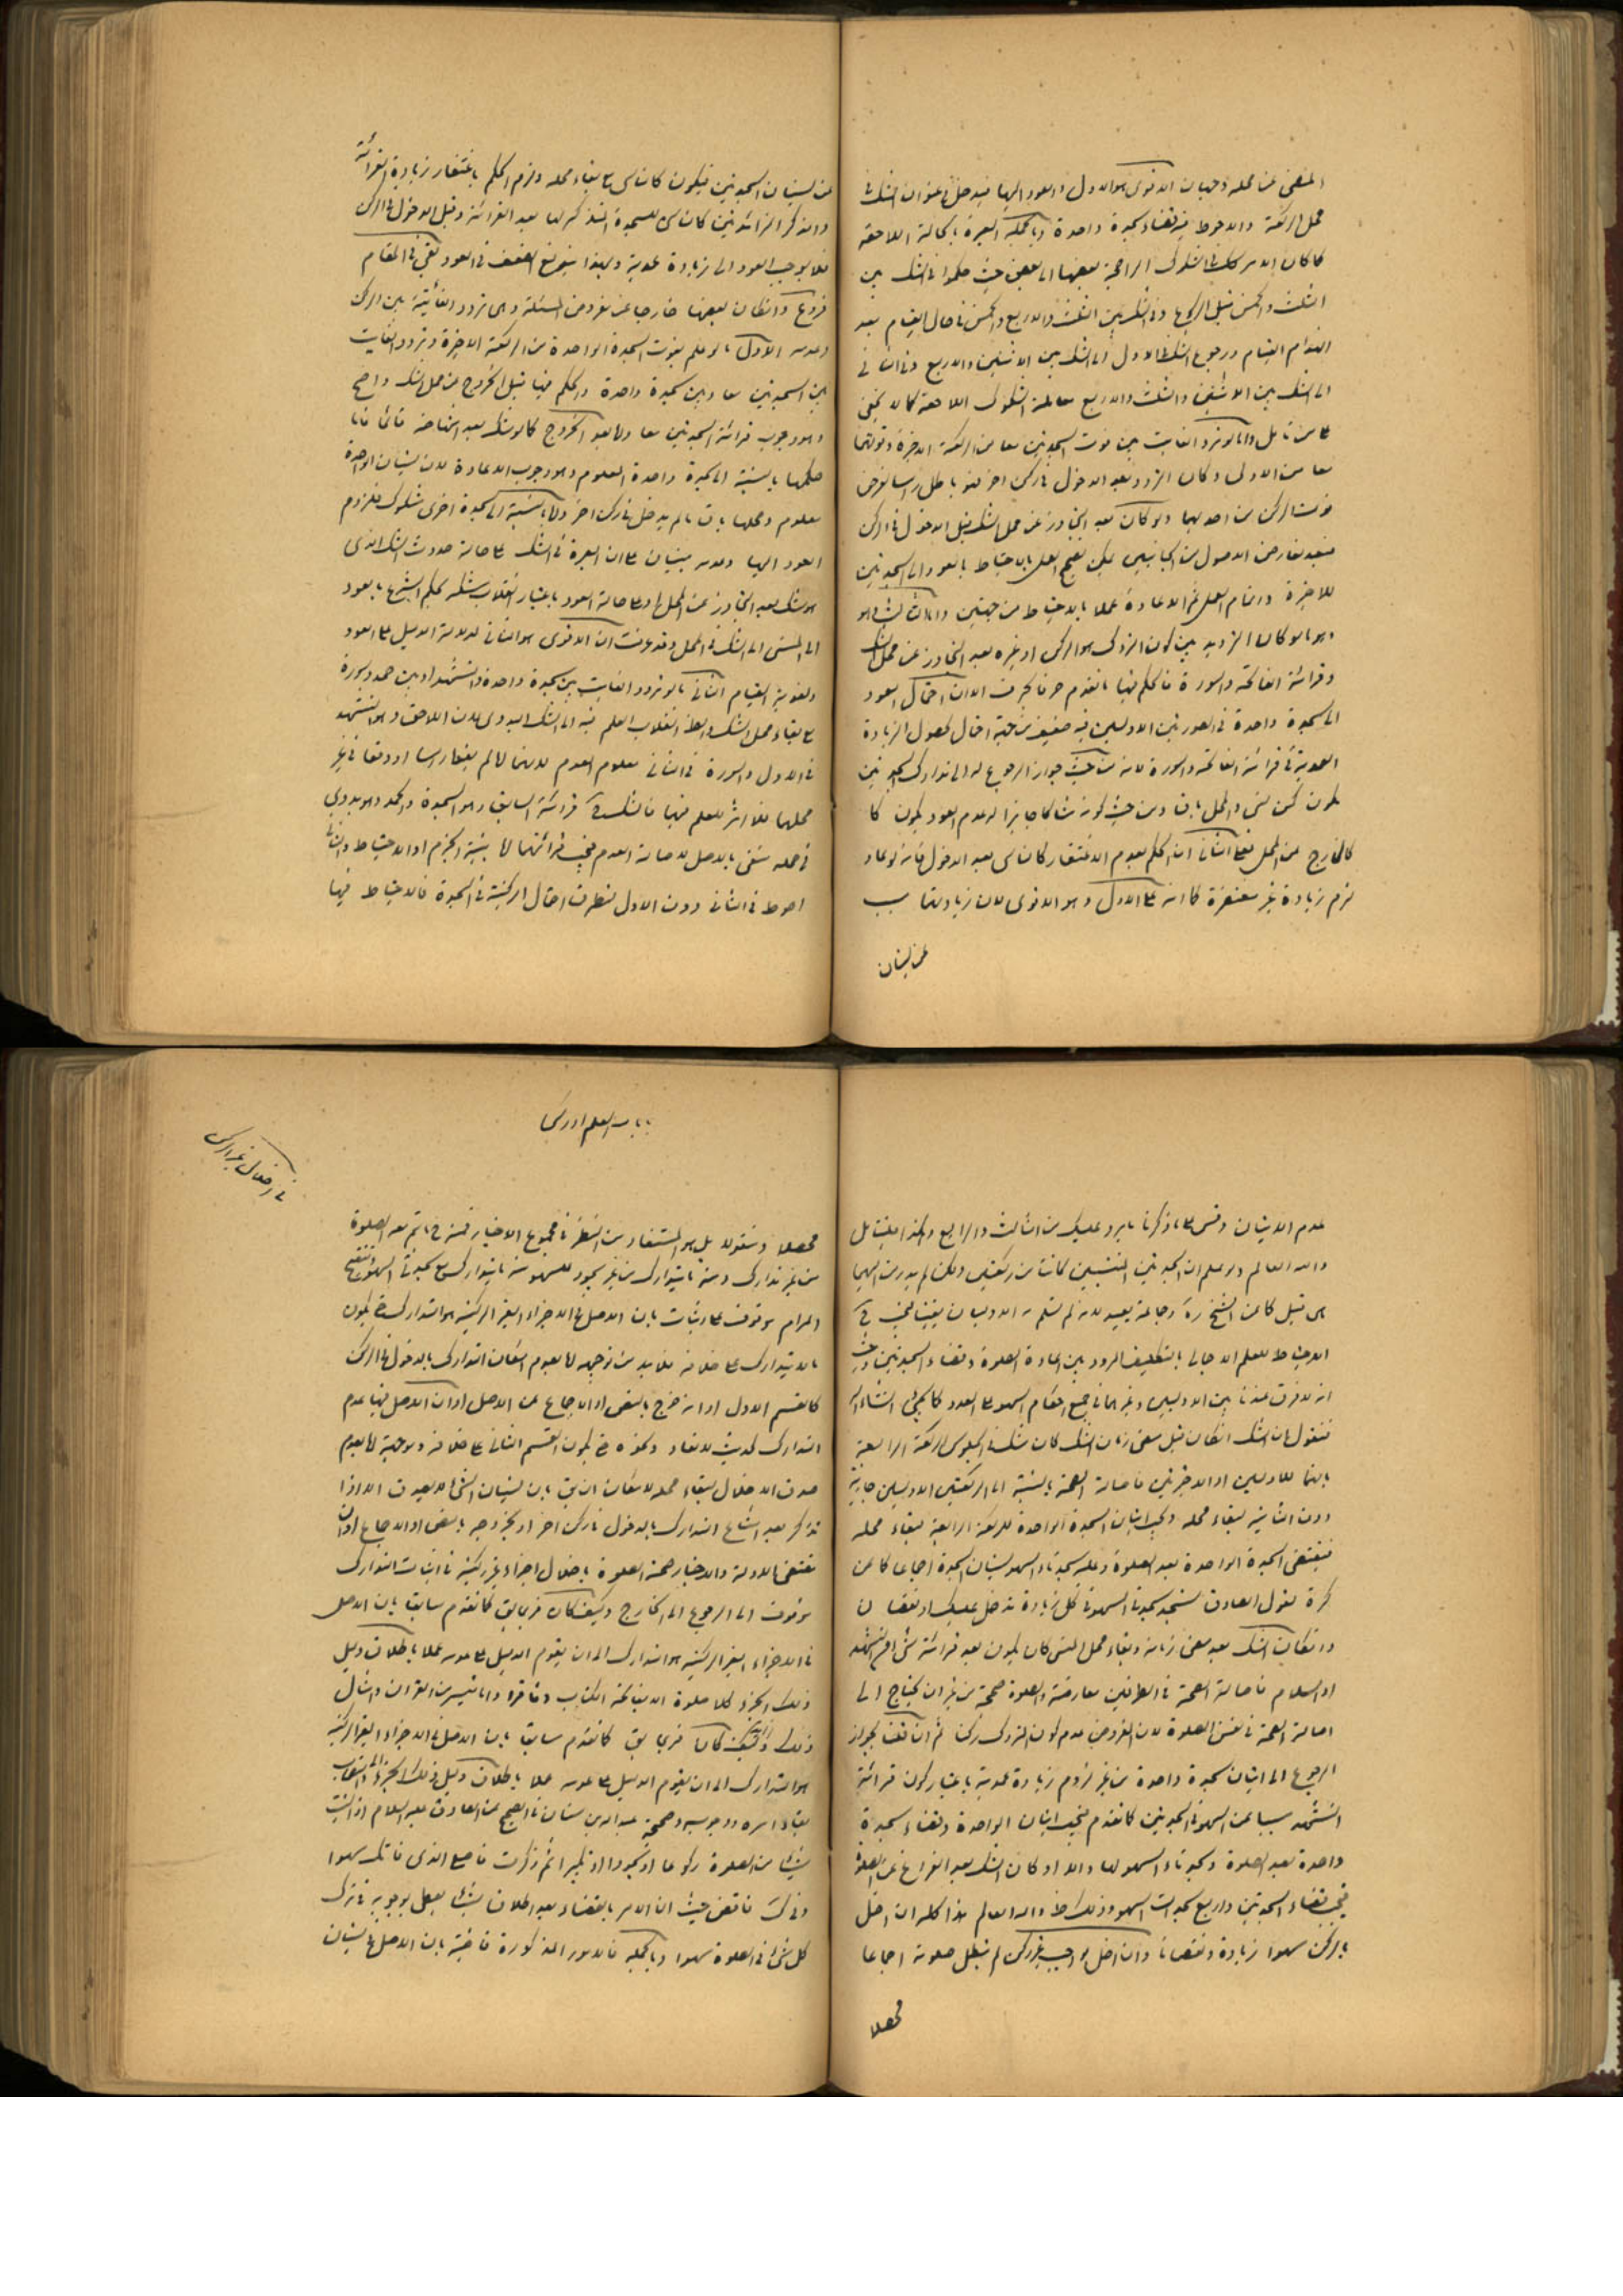 المنقضى عن محله وجهان الاقوى هو الاول والعود اليها فيدخل فى عنوان الشك فى
محل الركعة والاحوط قضاء سجدة واحدة وبالجملة العبرة بالحالة اللاحقة
كما كان الامر كذلك فى الشكوك الراجعة بعضها الى بعض حيث حكموا فى الشك بين
الثلث والخمس قبل الركوع وفى الشك بين الثلث والاربع والخمس فى حال القيام بعد
انهدام القيام ورجوع الشك فى الاول الى الشك بين الاثنين والاربع وفى الثانى
الى الشك بين الاثنين والثلث والاربع معاملة الشكوك اللاحقة كما لا يخفى
على من تأمل واما لو تردد الفائت بين فوت السجدتين معا من الركعة الاخيرة وفوتهما
معا من الاولى وكان التردد بعد الدخول فى ركن اخر فهو باطل راسا لفرض
فوت الركن من احديهما ولو كان بعد التجاوز عن محل الشك قبل الدخول فى الركن
فبعد تعارض الاصول من الجانبين يمكن تصحيح العمل بالاحتياط بالعود الى السجدتين
للاخيرة واتمام العمل ثم الاعادة عملا بالاحتياط من جهتين
وهو ما لو كان الترديد بين كون المتروك هو الركن او غيره بعد التجاوز عن محل الشك
وقرائة الفاتحة والسورة فالحكم فيها ما تقدم حرفا بحرف الا ان احتمال العود
الى سجدة واحدة فى الصورتين الاوليين فيه ضعيف من جهة احتمال حصول الزيادة
العمدية فى قرائة الفاتحة والسورة لانه من حيث جواز الرجوع له الى تدارك السجدتين
يكون كمن نسى والمحل باق ومن حيث كونه شاكا جايزا له عدم العود يكون كا
كالخارج عن المحل فعلى الثانى ان الحكم بعدم الاغتفار كالناسى بعد الدخول فانه لو عاد
لزم زيادة غير مغتفرة كما انه على الاول وهو الاقوى لان زيادتهما سبب
عن نسيان
عن نسيان السجدتين فيكون كالناسى مع بقاء محله ولزم الحكم باغتفار زيادة القرائة
والذكر الزائدتين كالناسى للسجدة المتذكر لها بعد القرائة وقبل الدخول فى الركن
فلا يوجب العود الى زيادة عمدية ولهذا الضعف فى العود بقى فى المقام
فروع وان كان بعضها خارجا عن مفروض المسئلة وهى تردد الفائتة بين الركن
وعدمه الاول ما لو علم بفوت السجدة الواحدة من الركعة الاخيرة وتردد الفائت
بين السجدتين معا وبين سجدة واحدة والحكم فيها قبل الخروج عن محل الشك واضح
وهو وجوب قرائة السجدتين معا واما بعد الخروج كما لو شك بعد انتهاضه قائما فاما
حكمها بالنسبة الى سجدة واحدة المعلوم وهو وجوب الاعادة لان نسيان الواحدة
معلوم ومحلها باق ما لم يدخل فى ركن اخر واما بالنسبة الى سجدة اخرى مشكوك فلزوم
العود اليها وعدمه مبنيان على ان العبرة فى الشك على حالة حدوث الشك الذى
هو شك بعد التجاوز عن المحل او على حالة العود باعتبار انقلاب شكه بحكم الشرع بالعود
الى المنسى الى الشك فى المحل وقد عرفت ان الاقوى هو الثانى لدلالة الدليل على العود
ولغوية القيام الثانى ما لو تردد الفائت بين سجدة واحدة والتشهد او بين حمد وسورة
مع بقاء محل الشك والظاهر انقلاب العلم فيه الى الشك البدوى لان اللاحق وهو التشهد
فى الاول والسورة فى الثانى معلوم العدم لانهما اما لم يفعلا راسا او وقعا فى غير
محلهما فلا اثر للعلم فيها فالشك فى قرائة السابق وهو السجدة والحمد وهو بدوى
فى محله منفى بالاصل لاصالة العدم فيجب قرائتهما اما بنية الجزم او الاحتياط والثانى
احوط فى الثانى دون الاول لتطرق احتمال الركنية فى السجدة فالاحتياط فيها
عدم الاتيان وقس على ما ذكرنا ما يرد عليك من الثالث والرابع وهكذا فليتأمل
والله العالم ولو علم ان السجدتين المنسيتين كانتا من ركعتين ولكن لم يدر من ايهما
هى قيل كما عن الشيخ ره وجماعة يعيد لانه لم تسلم له الاوليان يقينا فيجب فيه
الاحتياط للعلم الاجمالى بالتكليف المردد بين اعادة الصلوة وقضاء السجدتين وحيث
انه لا فرق عندنا بين الاوليين وغيرهما فى جميع احكام السهو على العدد كما يجئى انشاء الله
فنقول ان الشك ان كان قبل مضى زمان الشك كان شك فى الجلوس الركعة الرابعة
بانهما للاوليين او الاخيرتين فاصالة الصحة بالنسبة الى الركعتين الاوليين جارية
دون الثانية لبقاء محله ويجب اتيان السجدة الواحدة للركعة الرابعة لبقاء محله
فيقتضى السجدة الواحدة بعد الصلوة وعليه سجدتا السهو لنسيان السجدة اجماعا كما عن
كرة لقول الصادق تسجد سجدتى السهو فى كل زيادة تدخل عليك او نقصان
وان كان الشك بعد مضى زمانه وبقاء محل المنسى كان يكون بعد قرائة شئ من التشهد
او السلام فاصالة الصحة فى الطرفين معارضة والصلوة صحيحة من غير ان يحتاج الى
اصالة الصحة فى نفس الصلوة لان المفروض عدم كون المتروك ركنا ثم ان قلنا بجواز
الرجوع الى اتيان سجدة واحدة من غير لزوم زيادة عمدية باعتبار كون قرائة
التشهد سببا عن السهو فى السجدتين كما تقدم فيجب اتيان الواحدة وقضاء سجدة
واحدة بعد الصلوة وسجدتا السهو لها والا او كان الشك بعد الفراغ عن الصلوة
فيجب قضاء السجدتين واربع سجدات السهو والله العالم هذا كله ان اخل
بالركن سهوا زيادة ونقصانا وان اخل بواجب غير ركن لم تبطل صلوته اجماعا
محصلا
فى اخلال غير الركن
محصلا ومنقولا بل هو المستفاد من النظر فى مجموع الاخبار فمنه ما يتم معه الصلوة
من غير تدارك ومنه ما يتدارك من غير سجود للسهو ومنه ما يتدارك مع سجدتى السهو وتنقيح
المرام موقوف على اثبات بان الاصل فى الاجزاء الغير الركنية هو التدارك حتى يكون
ما لا يتدارك على خلافه فلابد من توجيهه اما بعدم امكان التدارك بالدخول فى الركن
كالقسم الاول او انه خرج بالنص او الاجماع عن الاصل او ان الاصل فيها عدم
التدارك لحديث لا تعاد ونحوه حتى يكون القسم الثانى على خلافه وتوجيهه اما بعدم
صدق الاخلال لبقاء محله لامكان ان يق بان نسيان الشئ لا يصدق الا اذا
تذكر بعد امتناع التدارك بالدخول فى ركن اخر او بخروجه بالنص او الاجماع او ان
مقتضى الادلة والاخبار صحة الصلوة باخلال اجزاء غير ركنية فاثبات التدارك
موقوف الى الرجوع الى الخارج وكيف كان فربما يق كما تقدم سابقا بان الاصل
فى الاجزاء الغير الركنية هو التدارك الى ان يقوم الدليل على عدمه عملا باطلاق دليل
ذلك الجزء كلا صلوة الا بفاتحة الكتاب وفاقرؤا ما تيسر من القران وامثال
ذلك وكيف كان فربما يق كما تقدم سابقا بان الاصل فى الاجزاء الغير الركنية
هو التدارك الى ان يقوم الدليل على عدمه عملا باطلاق دليل ذلك الجزء والى استصحاب
بقاء امره ووجوبه وصحيحة عبد الله بن سنان فى الصحيح عن الصادق عليه السلام اذا نسيت
شيئا من الصلوة ركوعا او سجودا او تكبيرا ثم ذكرت فاصنع الذى فاتك سهوا
حيث ان الامر بالقضاء بعد اطلاق شيئا يعطى بوجوبه فى ترك
كل شئ فى الصلوة سهوا وبالجملة فالامور المذكورة قاضية بان الاصل فى نسيان